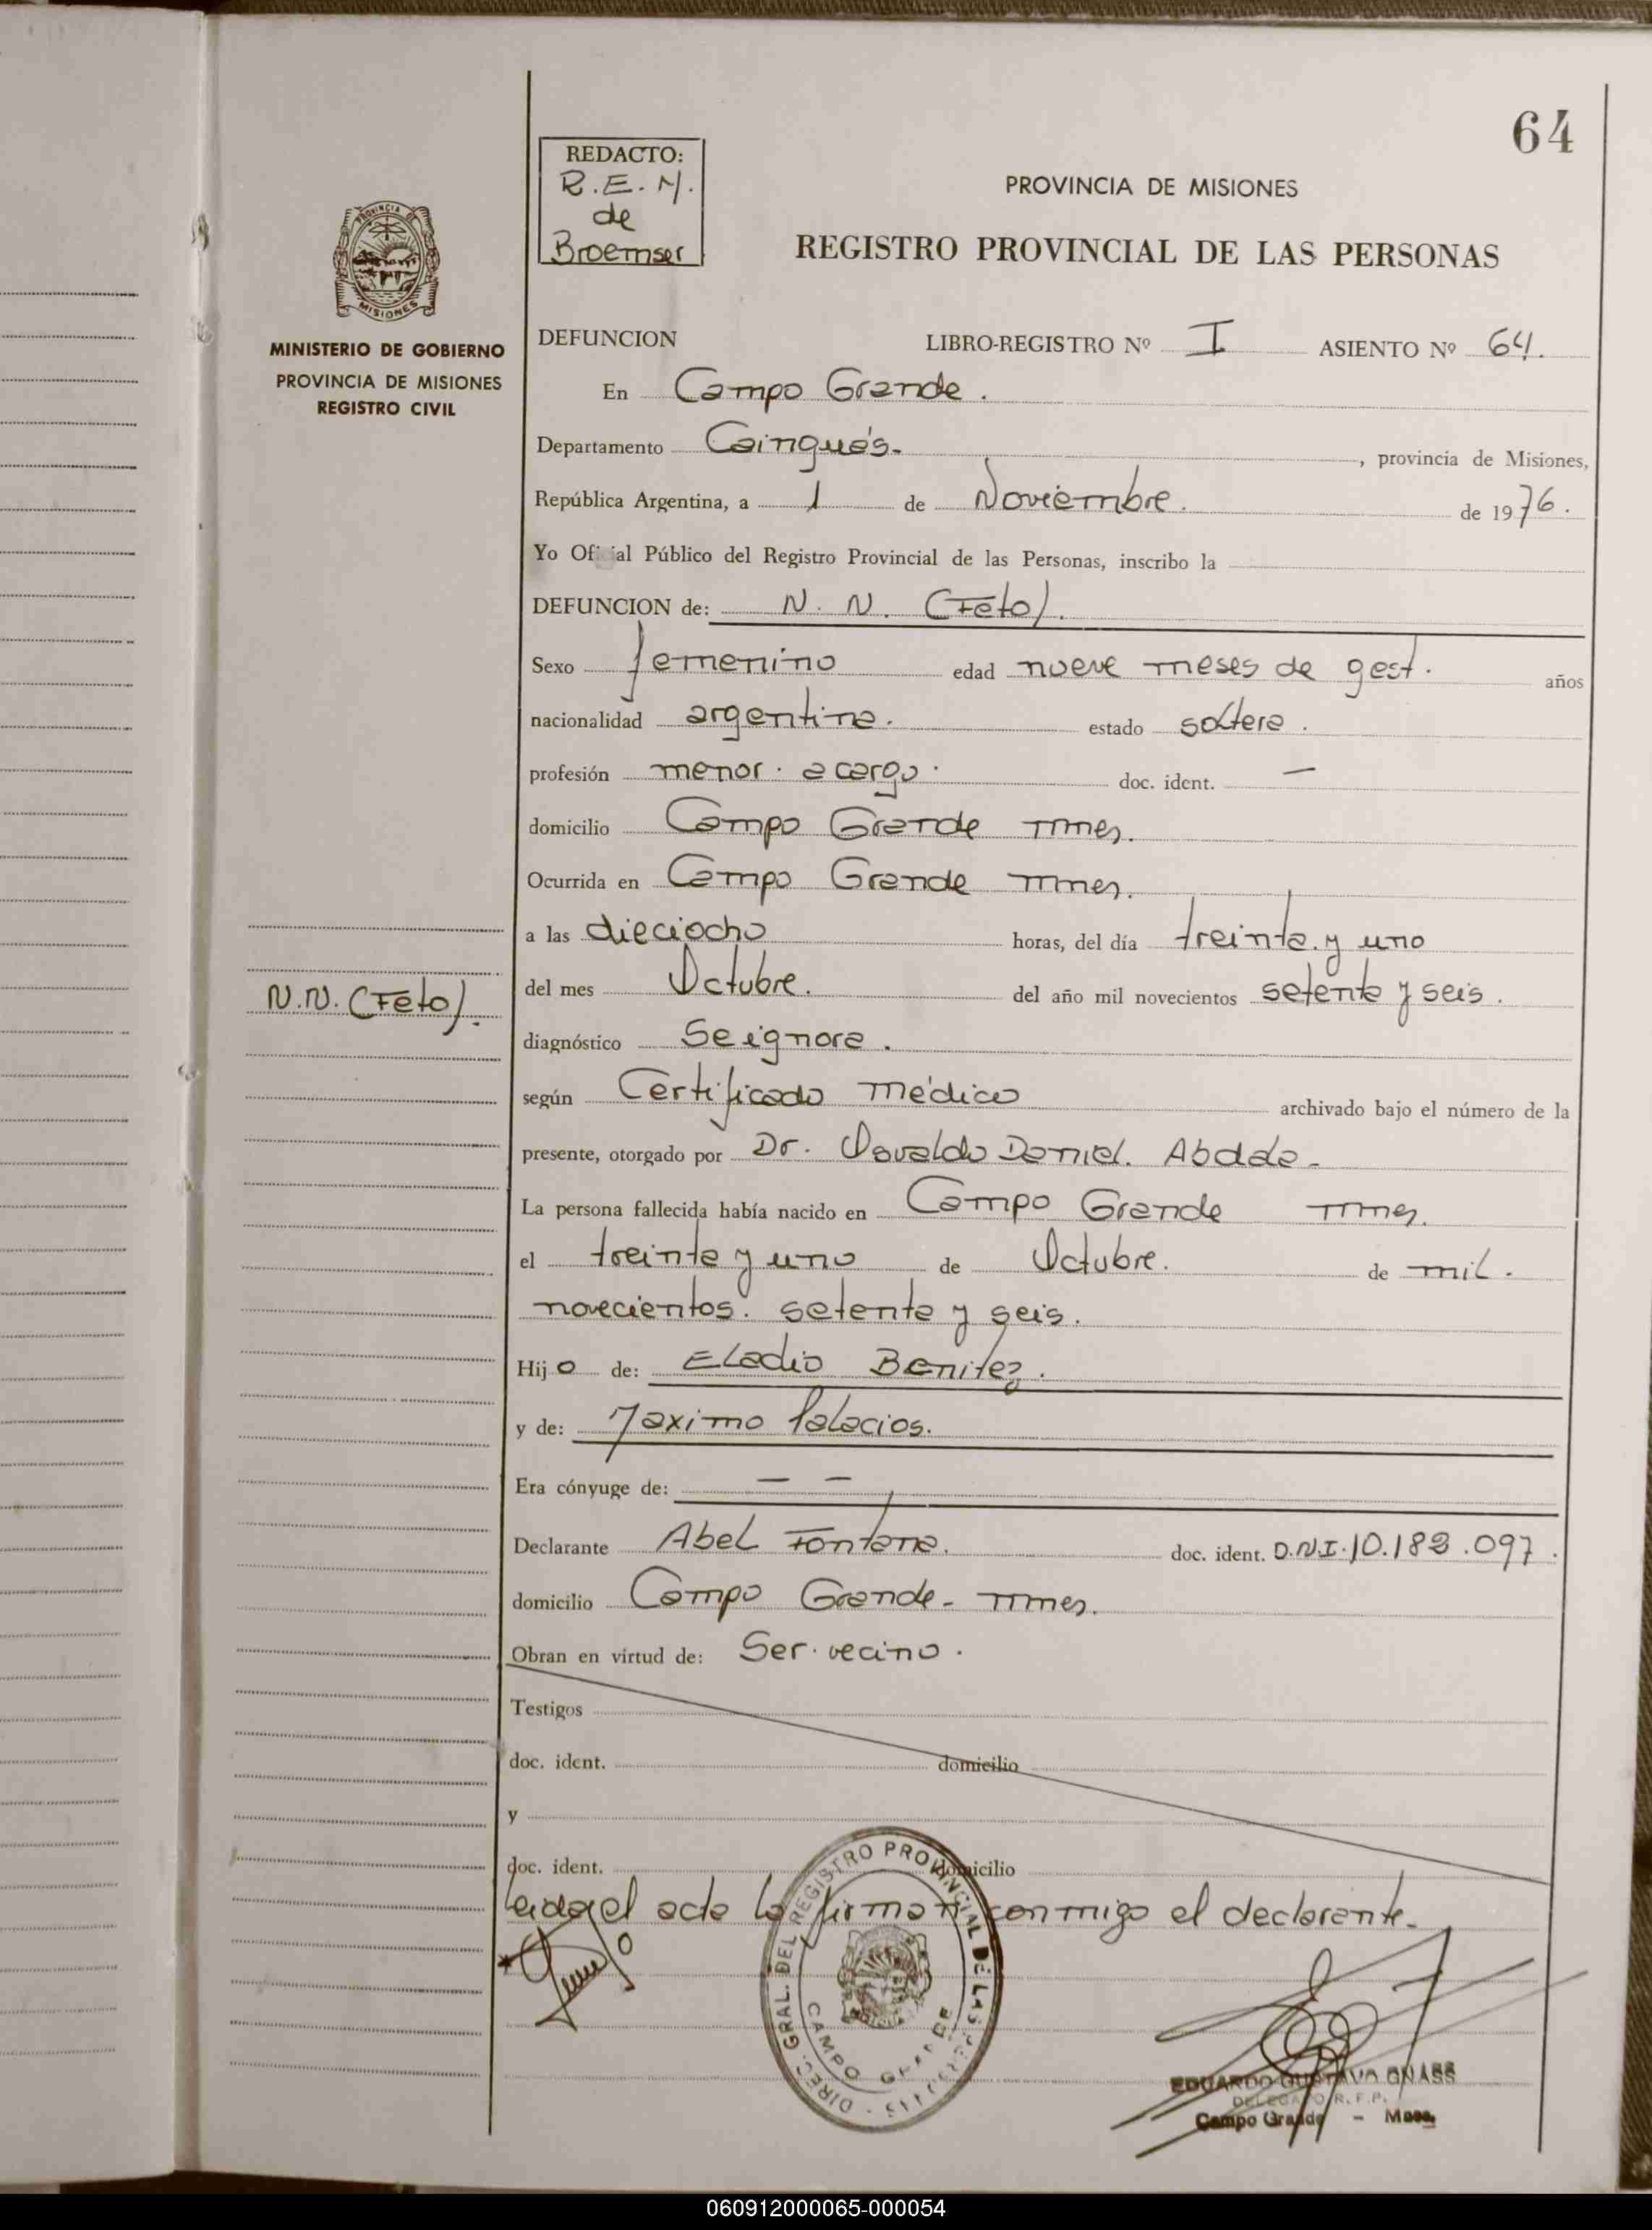 64
REDACTO:
R.E.M.
de
Broemser
PROVINCIA DE MISIONES
REGISTRO PROVINCIAL DE LAS PERSONAS
MINISTERIO DE GOBIERNO
PROVINCIA DE MISIONES
REGISTRO CIVIL
DEFUNCION LIBRO-REGISTRO Nº I ASIENTO Nº 64.
En Campo Grande.
Departamento Cainguás-, provincia de Misiones,
República Argentina, a 1 de Noviembre. de 1976.
Yo Oficial Público del Registro Provincial de las Personas, inscribo la
DEFUNCION de: N. N. (Feto).
Sexo femenino edad nueve meses de gest. años
nacionalidad argentina. estado soltera.
profesión menor. a cargo. doc. ident. —
domicilio Campo Grande Mnes.
Ocurrida en Campo Grande Mnes.
a las dieciocho horas, del día treinta y uno
del mes Octubre. del año mil novecientos setenta y seis.
N.N. (Feto).
diagnóstico Se ignora.
según Certificado médico archivado bajo el número de la
presente, otorgado por Dr. Osvaldo Daniel. Abdala-
La persona fallecida había nacido en Campo Grande Mnes.
el treinta y uno de Octubre. de mil.
novecientos. setenta y seis.
Hijo de: Eladio Benitez.
y de: Maximo Palacios.
Era cónyuge de: — —
Declarante Abel Fontana. doc. ident. D.N.I. 10.182.097.
domicilio Campo Grande- Mnes.
Obran en virtud de: Ser. vecino.
Testigos
doc. ident. domicilio
y
doc. ident. domicilio
Leida el acta la firman conmigo el declarante-
DIREC. GRAL. DEL REGISTRO PROVINCIAL DE LAS PERSONAS
CAMPO GRANDE
EDUARDO GUSTAVO GNASS
DELEGADO R.P.P.
Campo Grande - Mnes.
060912000065-000054